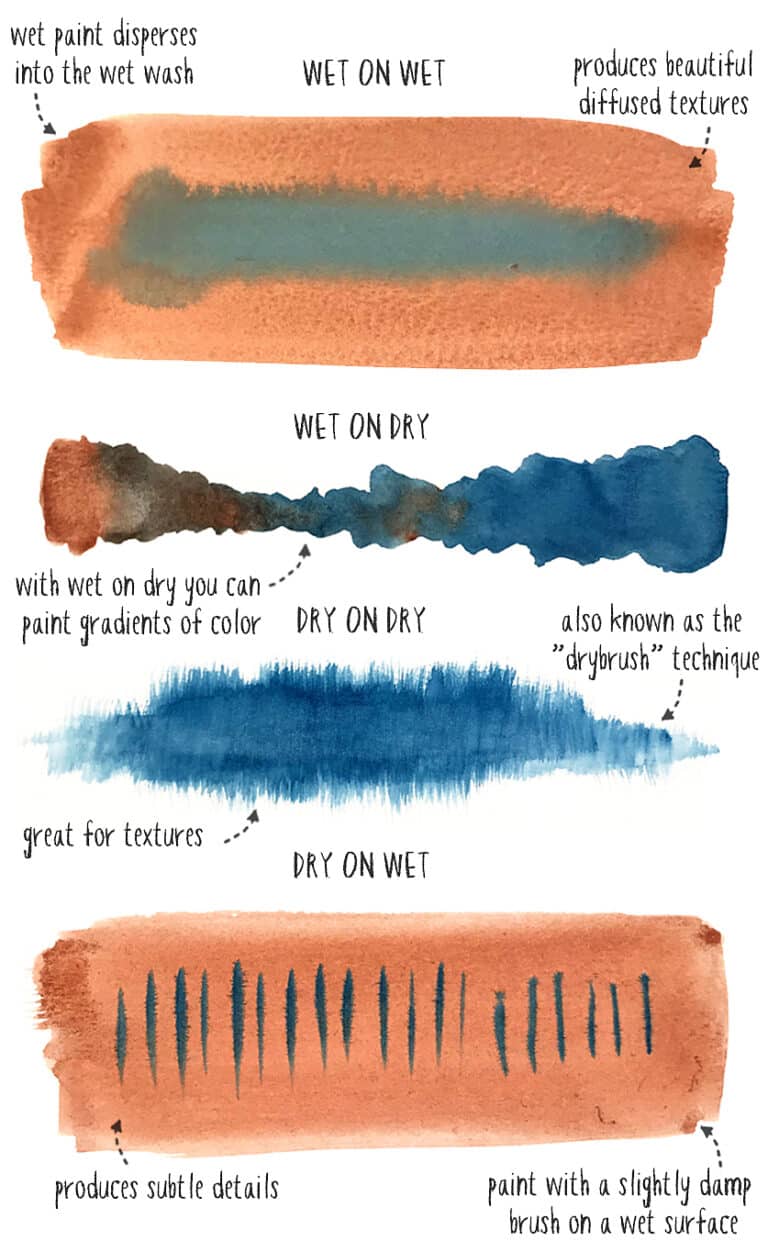 wet paint disperses
into the wet wash
WET ON WET
produces beautiful
diffused textures
WET ON DRY
with wet on dry you can
paint gradients of color
DRY ON DRY
also known as the
"drybrush" technique
great for textures
DRY ON WET
produces subtle details
paint with a slightly damp
brush on a wet surface